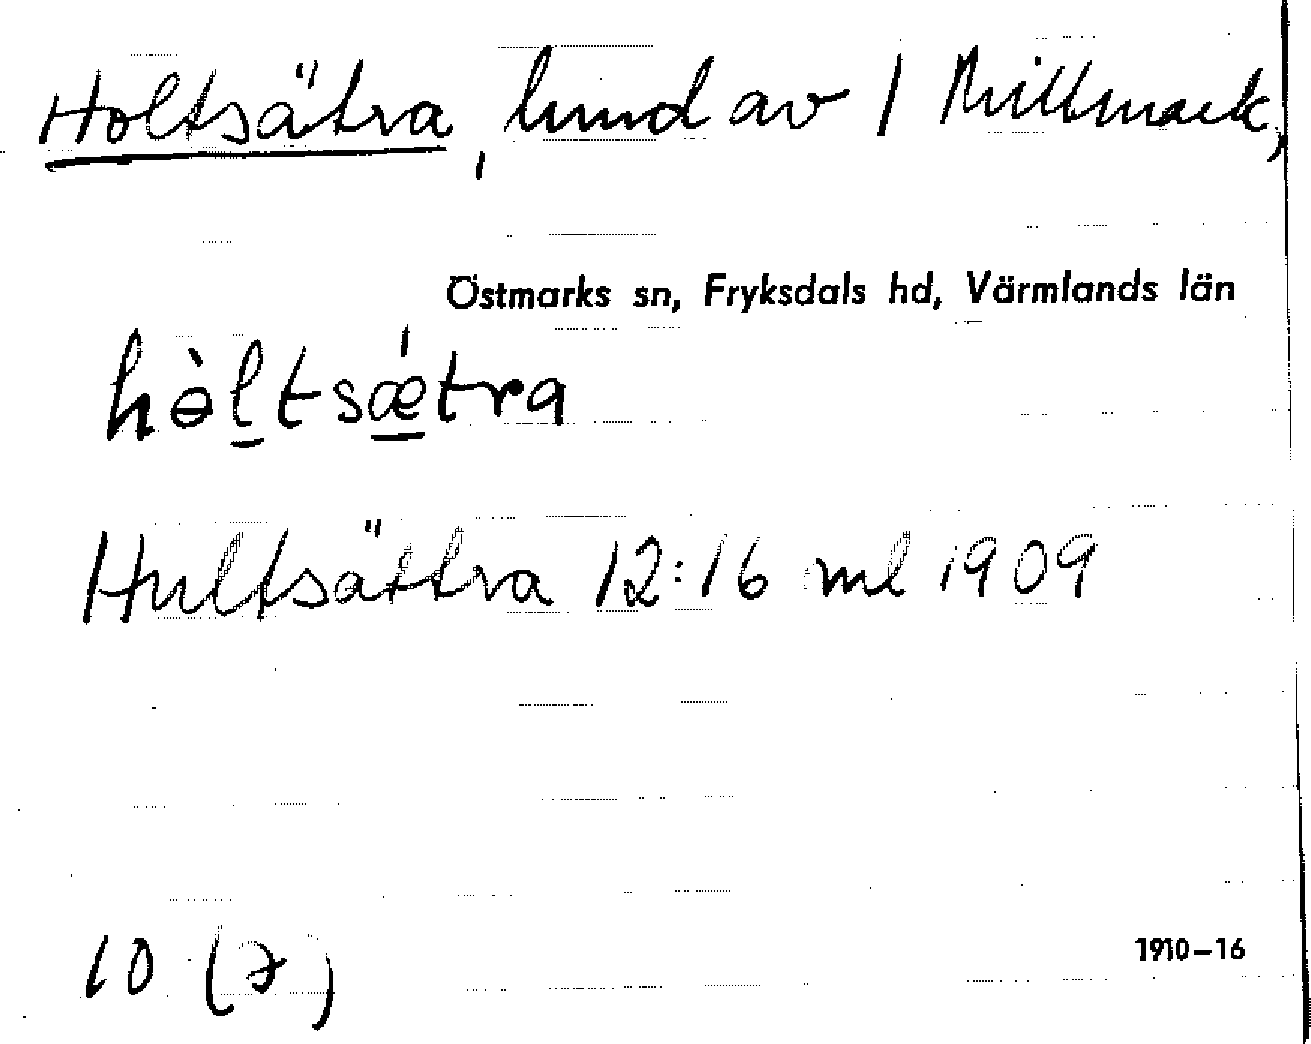 Holtsätra, lund av 1 Millmark,
Östmarks sn, Fryksdals hd, Värmlands län
hòltsǽtra
Hultsättra 12:16 ml 1909
10 (7)
1910–16